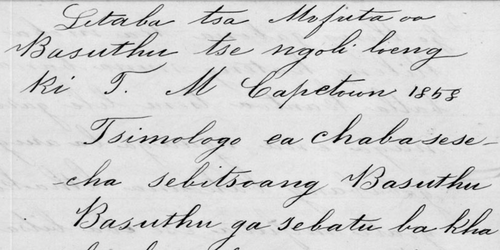 Litaba tsa Mofuta oa
Basuthu tse ngoli loeng
ki T. M Capetown 1858
Tsimologo ea chaba sese-
-cha sebitsoang Basuthu
Basuthu ga sebatu ba kha